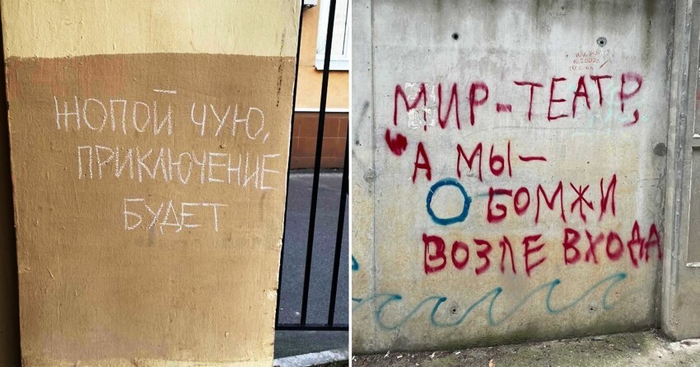 ЖОПОЙ ЧУЮ,
ПРИКЛЮЧЕНИЕ
БУДЕТ
МИР-ТЕАТР,
А МЫ-
БОМЖИ
ВОЗЛЕ ВХОДА